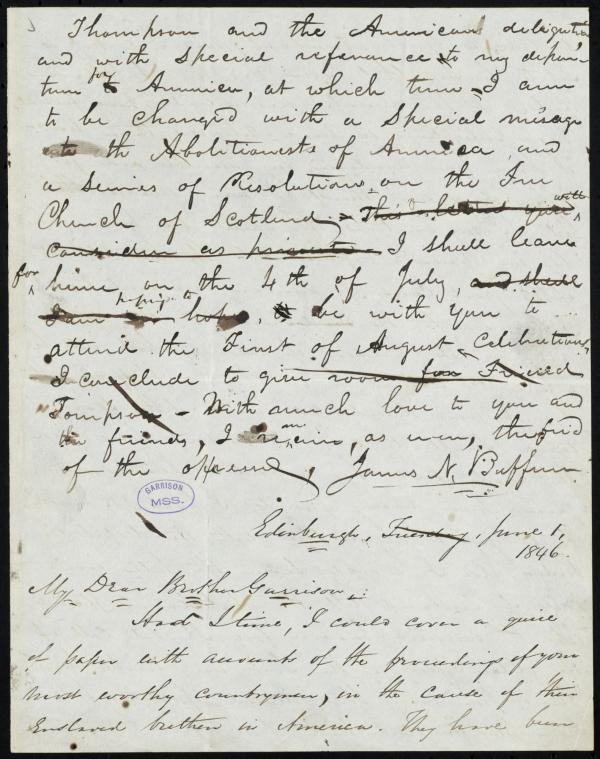 Thompson and the American delegation
and with special referance to my depar-
ture for America, at which time I am
to be charged with a Special message
to the Abolitionests of America and
a Seiries of Resolutions, on the Free
Church of Scotland, - This letter you will
consider as private - I shall leave
for hime on the 4th of July, and shall
I am hoping to hope, be with you to
attend the First of August Celebration,
I conclude to give room for Friend
Tompson - With much love to you and
the friends, I remain, as ever, the frid
of the oppressed, James N. Buffum
GARRISON
MSS.
Edinburgh, Tuesday, June 1,
1846.
My Dear Brother Garrison,
Had I time, I could cover a quire
of paper with accounts of the proceedings of your
most worthy countrymen, in the cause of their
Enslaved brethren in America. They have been